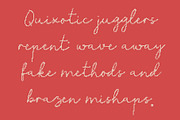 Quixotic jugglers
repent wave away
fake methods and
brazen mishaps.